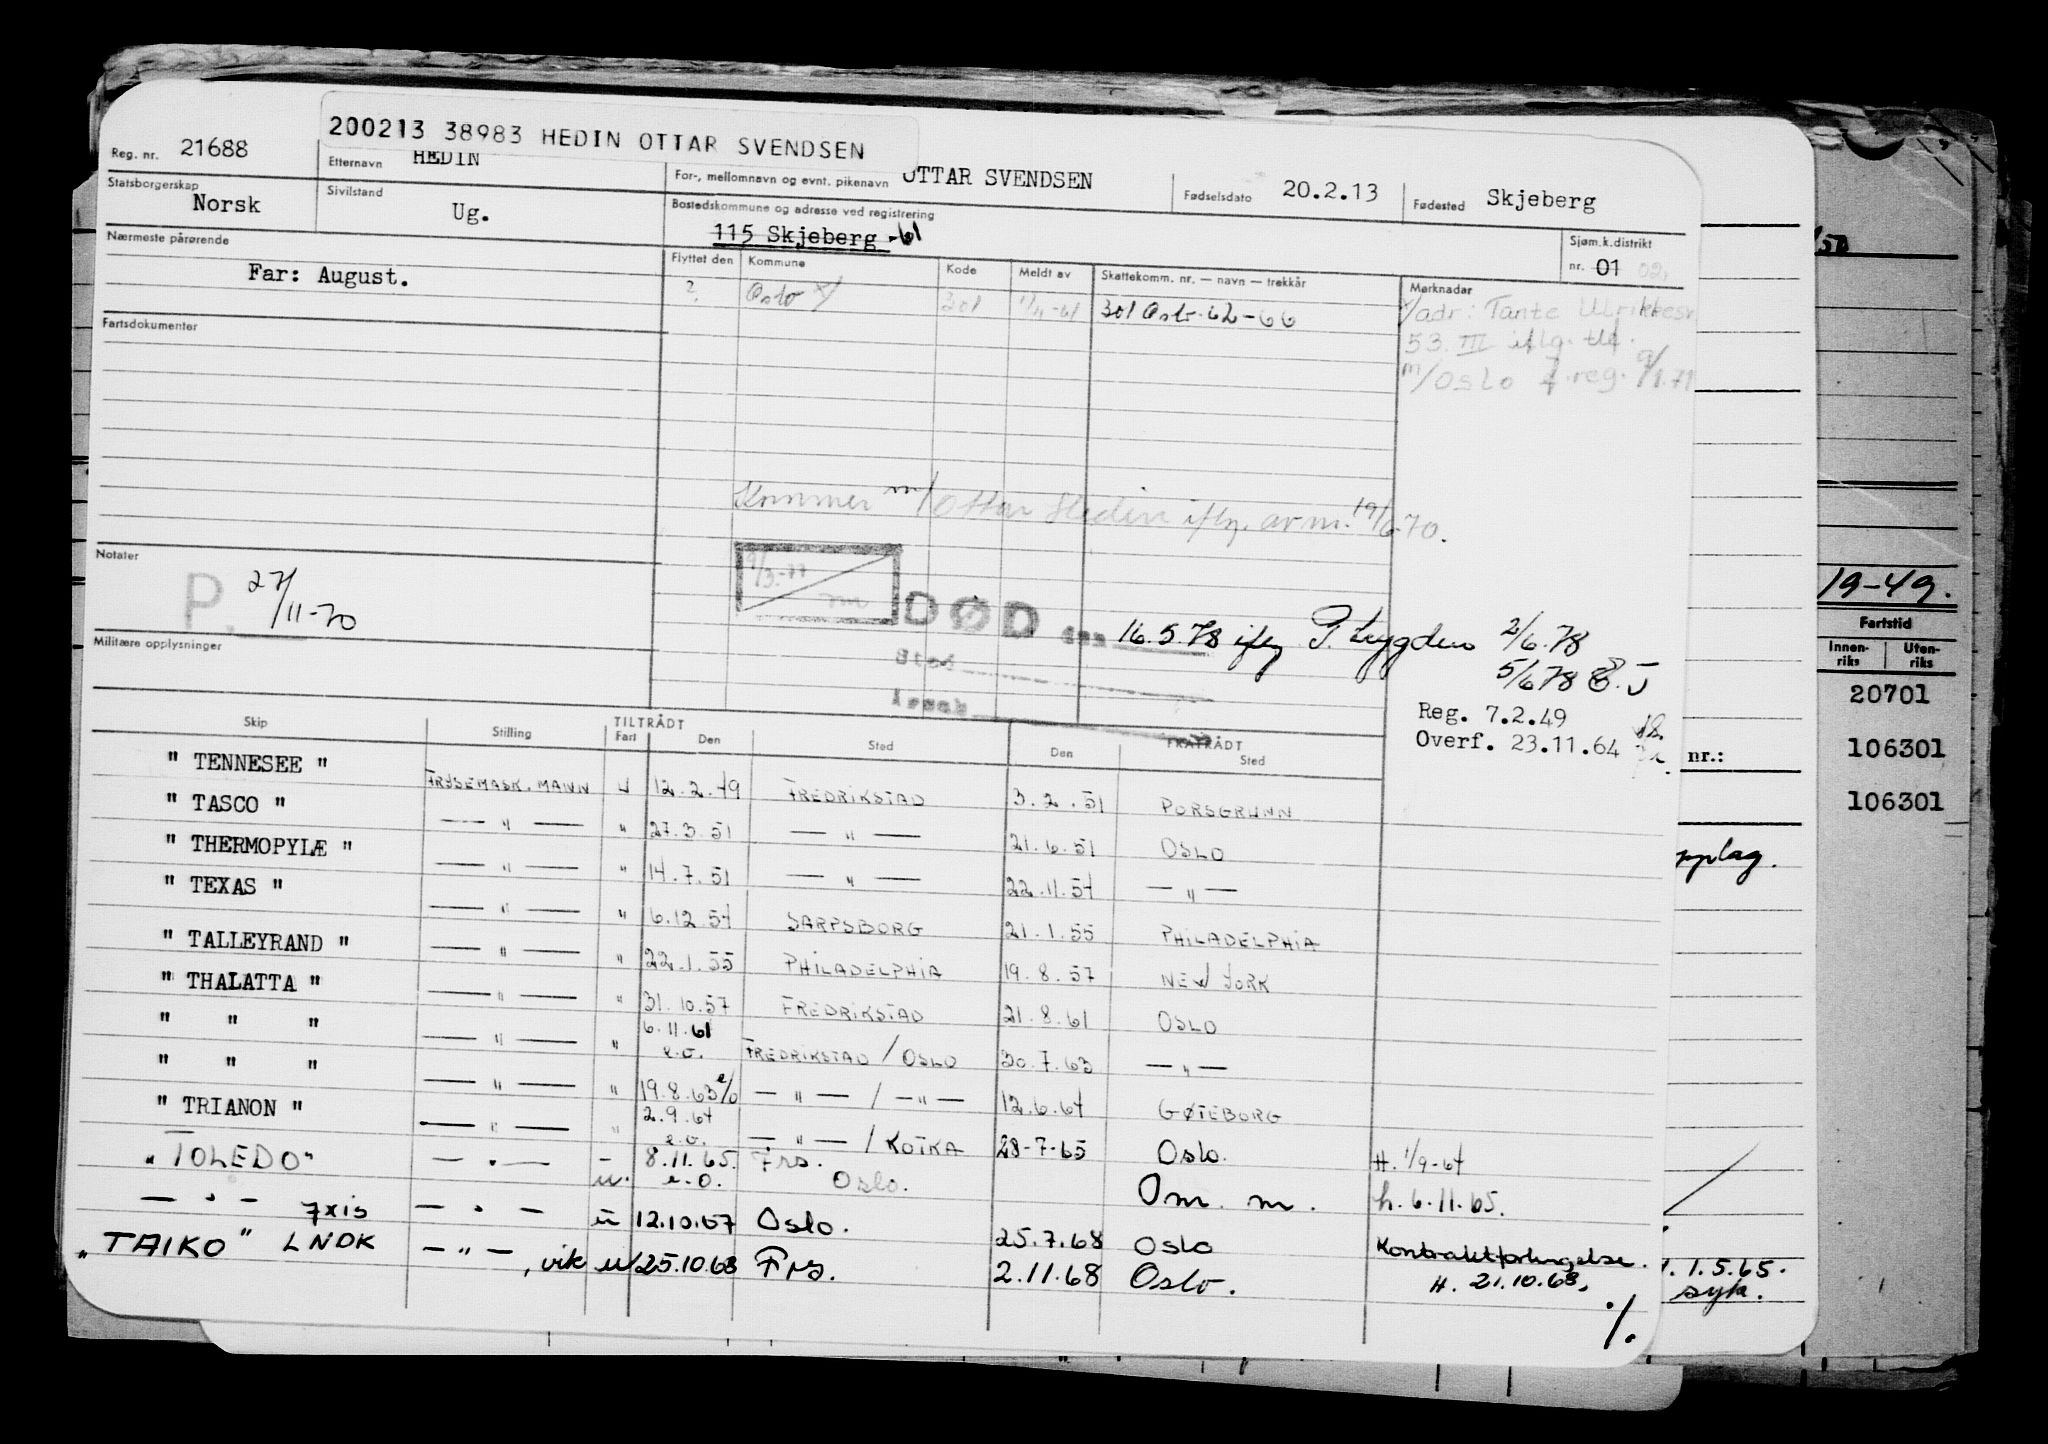 200213 38983 HEDIN OTTAR SVENDSEN
Reg. nr. 21688 Etternavn HEDIN For-, mellomnavn og evnt. pikenavn OTTAR SVENDSEN Fødselsdato 20.2.13 Fødested Skjeberg
Statsborgerskap Norsk Sivilstand Ug. Bostedskommune og adresse ved registrering
115 Skjeberg -61
Sjøm.k.distrikt
nr. 01 02.
Nærmeste pårørende
Far: August.
Flyttet den Kommune Kode Meldt av Skattekomm. nr. — navn — trekkår Merknader
? Oslo x/ 301 1/11-61 301 Oslo 62-66
x/adr: Tante Ulrikkesv.
53 III iflg. tlf.
m/Oslo f.reg. 9/1.71
Fartsdokumenter
Kommer m/ Ottar Hedin iflg. av m. 19/6-70.
Notater
P. 27/11-70
9/3.-77
m
DØD den 16.5.78 iflg P. trygden 2/6.78
Sted
5/678
Årsak
Militære opplysninger
Reg. 7.2.49
Overf. 23.11.64
Skip Stilling TILTRÅDT Fart Den Sted FRATRÅDT Den Sted
" TENNESEE " FRYSEMASK. MANN U 12.2.49 FREDRIKSTAD 3.2.51 PORSGRUNN
" TASCO " — " — " 27.3.51 — " — 21.6.51 OSLO
" THERMOPYLÆ " — " — " 14.7.51 — " — 22.11.54 — " —
" TEXAS " — " — " 6.12.54 SARPSBORG 21.1.55 PHILADELPHIA
" TALLEYRAND " — " — " 22.1.55 PHILADELPHIA 19.8.57 NEW YORK
" THALATTA " — " — " 31.10.57 FREDRIKSTAD 21.8.61 OSLO
" " " — " — " 6.11.61 e.o. FREDRIKSTAD / OSLO 30.7.63 — " —
" " " — " — " 19.8.63 e/o — " — / — " — 12.6.64 GØTEBORG
" TRIANON " — " — " 2.9.64 e.o. — " — / KOTKA 28-7-65 Oslo. H. 1/9-64
" TOLEDO " — " — - u. 8.11.65. e.o. Frs. Oslo. Om. m. h. 6.11.65.
— " — 7xis — " — u 12.10.67 Oslo. 25.7.68 Oslo Kontraktforlengelse.
" TAIKO " LNDK — " —, vik u 25.10.68 Frs. 2.11.68 Oslo. H. 21.10.68.
./.
19-49.
Fartstid
Innen-riks Uten-riks
20701
nr.: 106301
106301
pplag.
1.5.65.
syk.